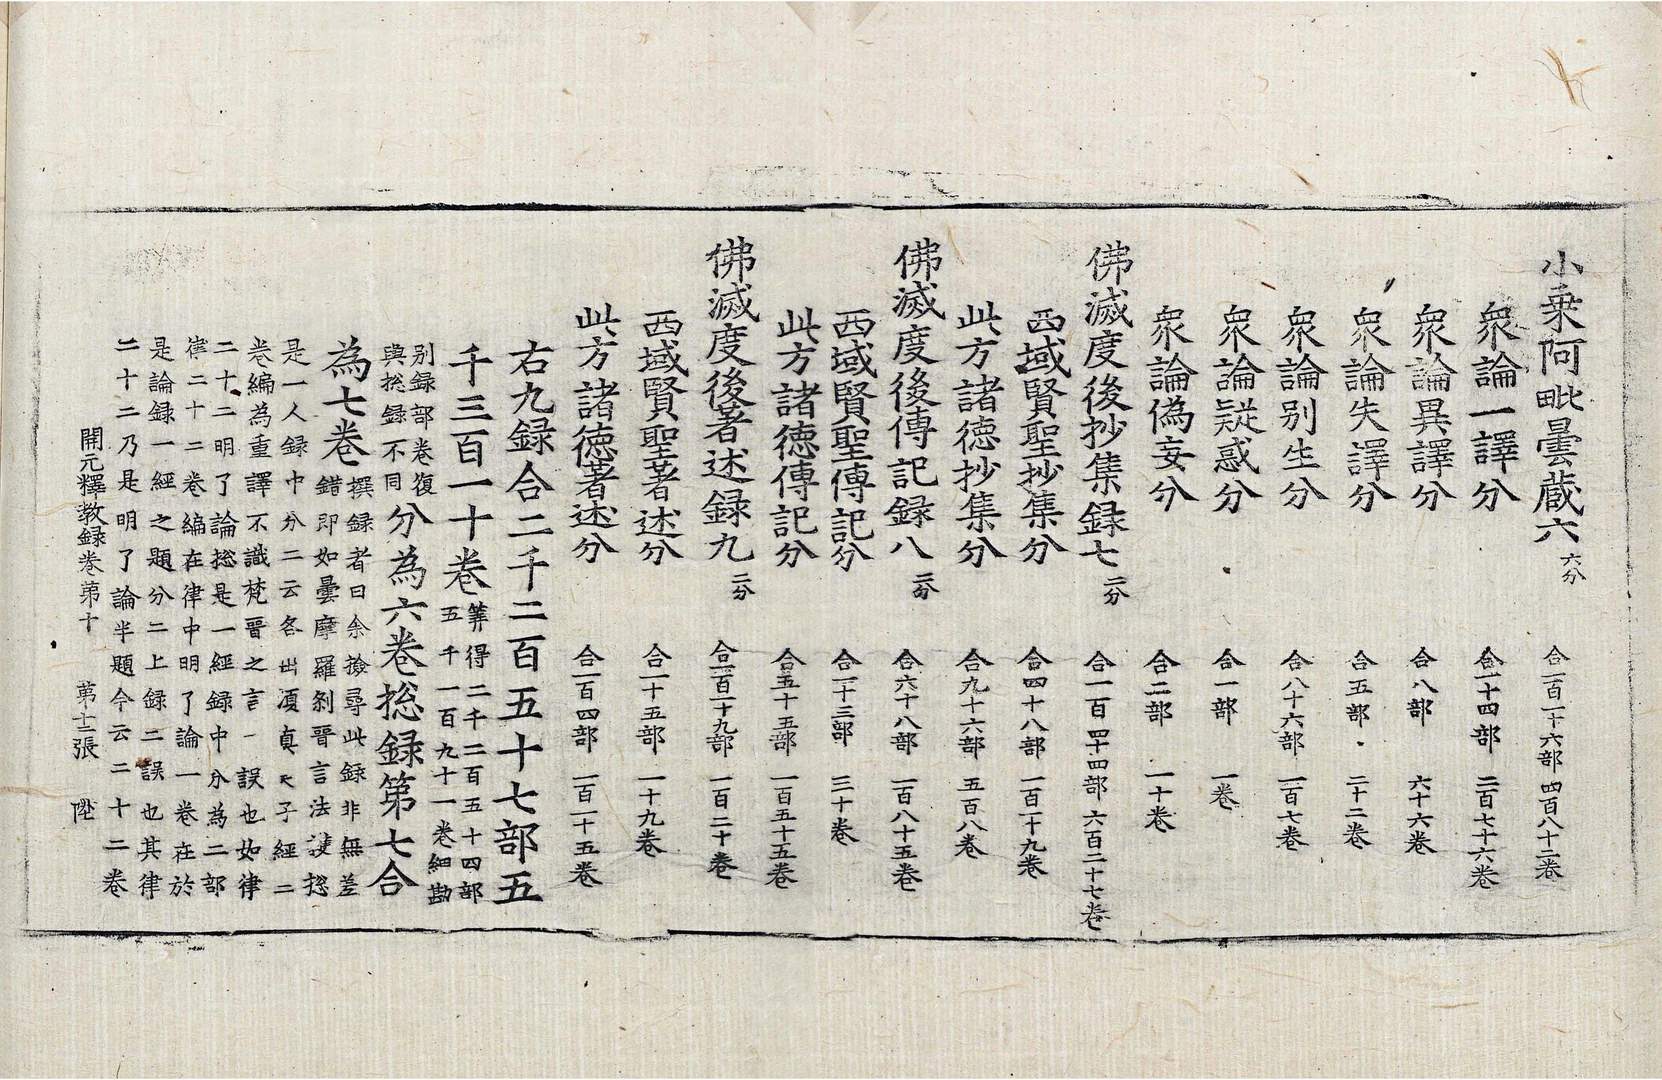 小乗阿毗曇蔵六 六分 合一百一十六部 四百八十二卷
衆論一譯分 合一十四部 二百七十六卷
衆論異譯分 合八部 六十六卷
衆論失譯分 合五部 二十二卷
衆論别生分 合八十六部 一百七卷
衆論疑惑分 合一部 一卷
衆論偽妄分 合二部 一十卷
佛滅度後抄集録七 二分 合一百四十四部 六百二十七卷
西域賢聖抄集分 合四十八部 一百一十九卷
此方諸徳抄集分 合九十六部 五百八卷
佛滅度後傳記録八 二分 合六十八部 一百八十五卷
西域賢聖傳記分 合一十三部 三十卷
此方諸徳傳記分 合五十五部 一百五十五卷
佛滅度後著述録九 二分 合一百一十九部 一百二十卷
西域賢聖著述分 合一十五部 一十九卷
此方諸徳著述分 合一百四部 一百一十五卷
右九録合二千二百五十七部五
千三百一十卷 筭得二千二百五十四部
五千一百九十一卷細勘
别録部卷復
與捴録不同 分為六卷捴録第七合
為七卷 撰録者曰余撿尋此録非無差
錯即如曇摩羅剎晉言法護捴
是一人録中分二云各出須真天子經二
卷編為重譯不識梵晉之言一誤也如律
二十二明了論捴是一經録中分為二部
律二十二卷編在律中明了論一卷在於
是論録一經之題分二上録二誤也其律
二十二乃是明了論半題今云二十二卷
開元釋教録卷第十 第十二張